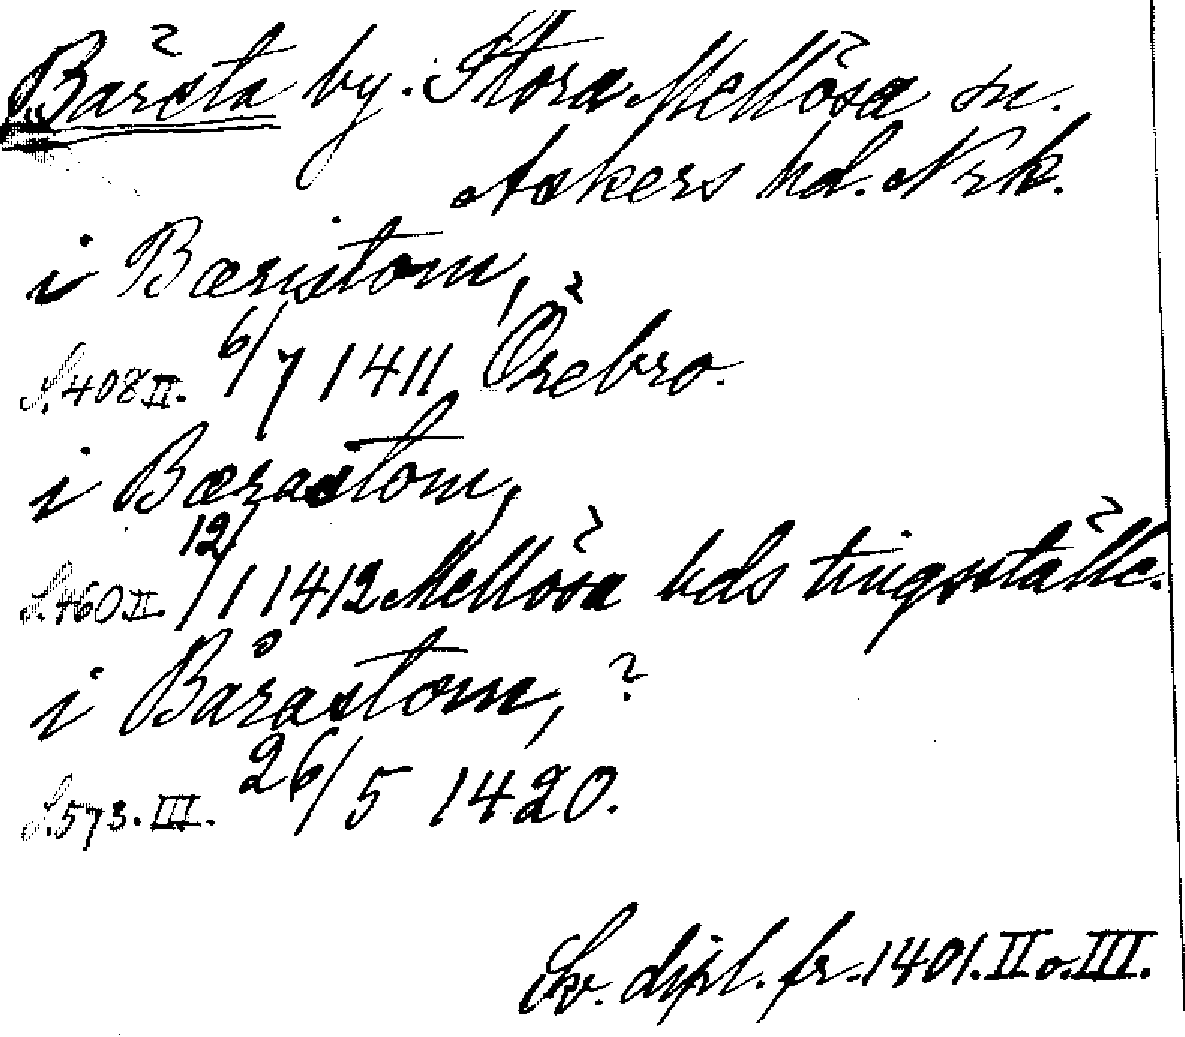 Bärsta by. Stora Mellösa sn.
Askers hd. Nrk.
i Bæristom,
S. 408 II. 6/7 1411 Örebro.
i Bærastom,
S. 460 II. 12/1 1412 Mellösa hds tingsställe.
i Bårastom, ?
S. 573. III. 26/5 1420.
Sv. dipl. fr. 1401. II o. III.